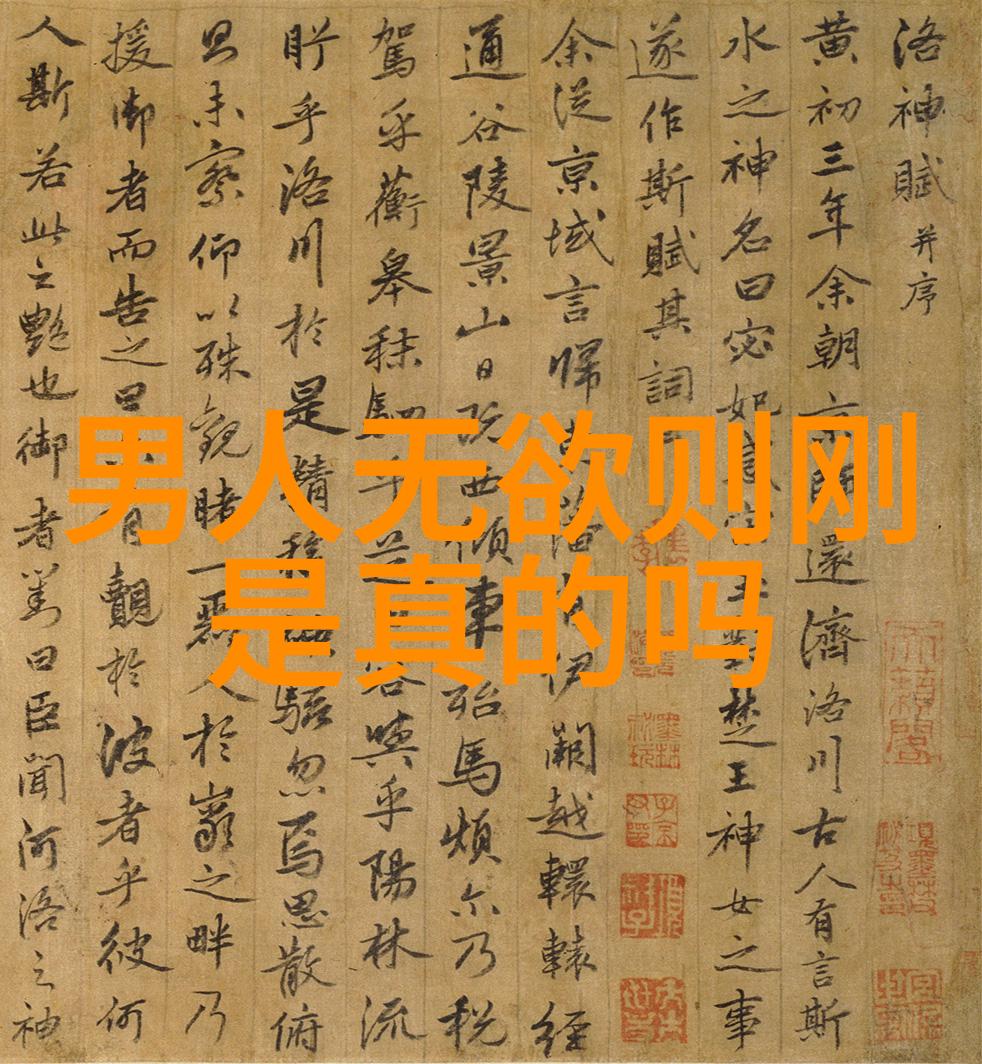 男人无欲则刚
是真的吗
洛神賦 并序
黄初三年余朝京師還濟洛川古人有言斯
水之神名曰宓妃感宋玉對楚王神女之事
遂作斯賦其詞
余從京域言歸伊闕越轘轅經
通谷陵景山日既西傾車殆馬煩尒乃税
駕乎蘅皋秣駟乎芝容與乎陽林流
眄乎洛川於是精移駭忽焉思散俯
則未察仰以殊觀睹一麗人於巖之畔乃
援御者而告之曰有覿於彼者乎彼何
人斯若此之艷也御者對曰臣聞河洛之神